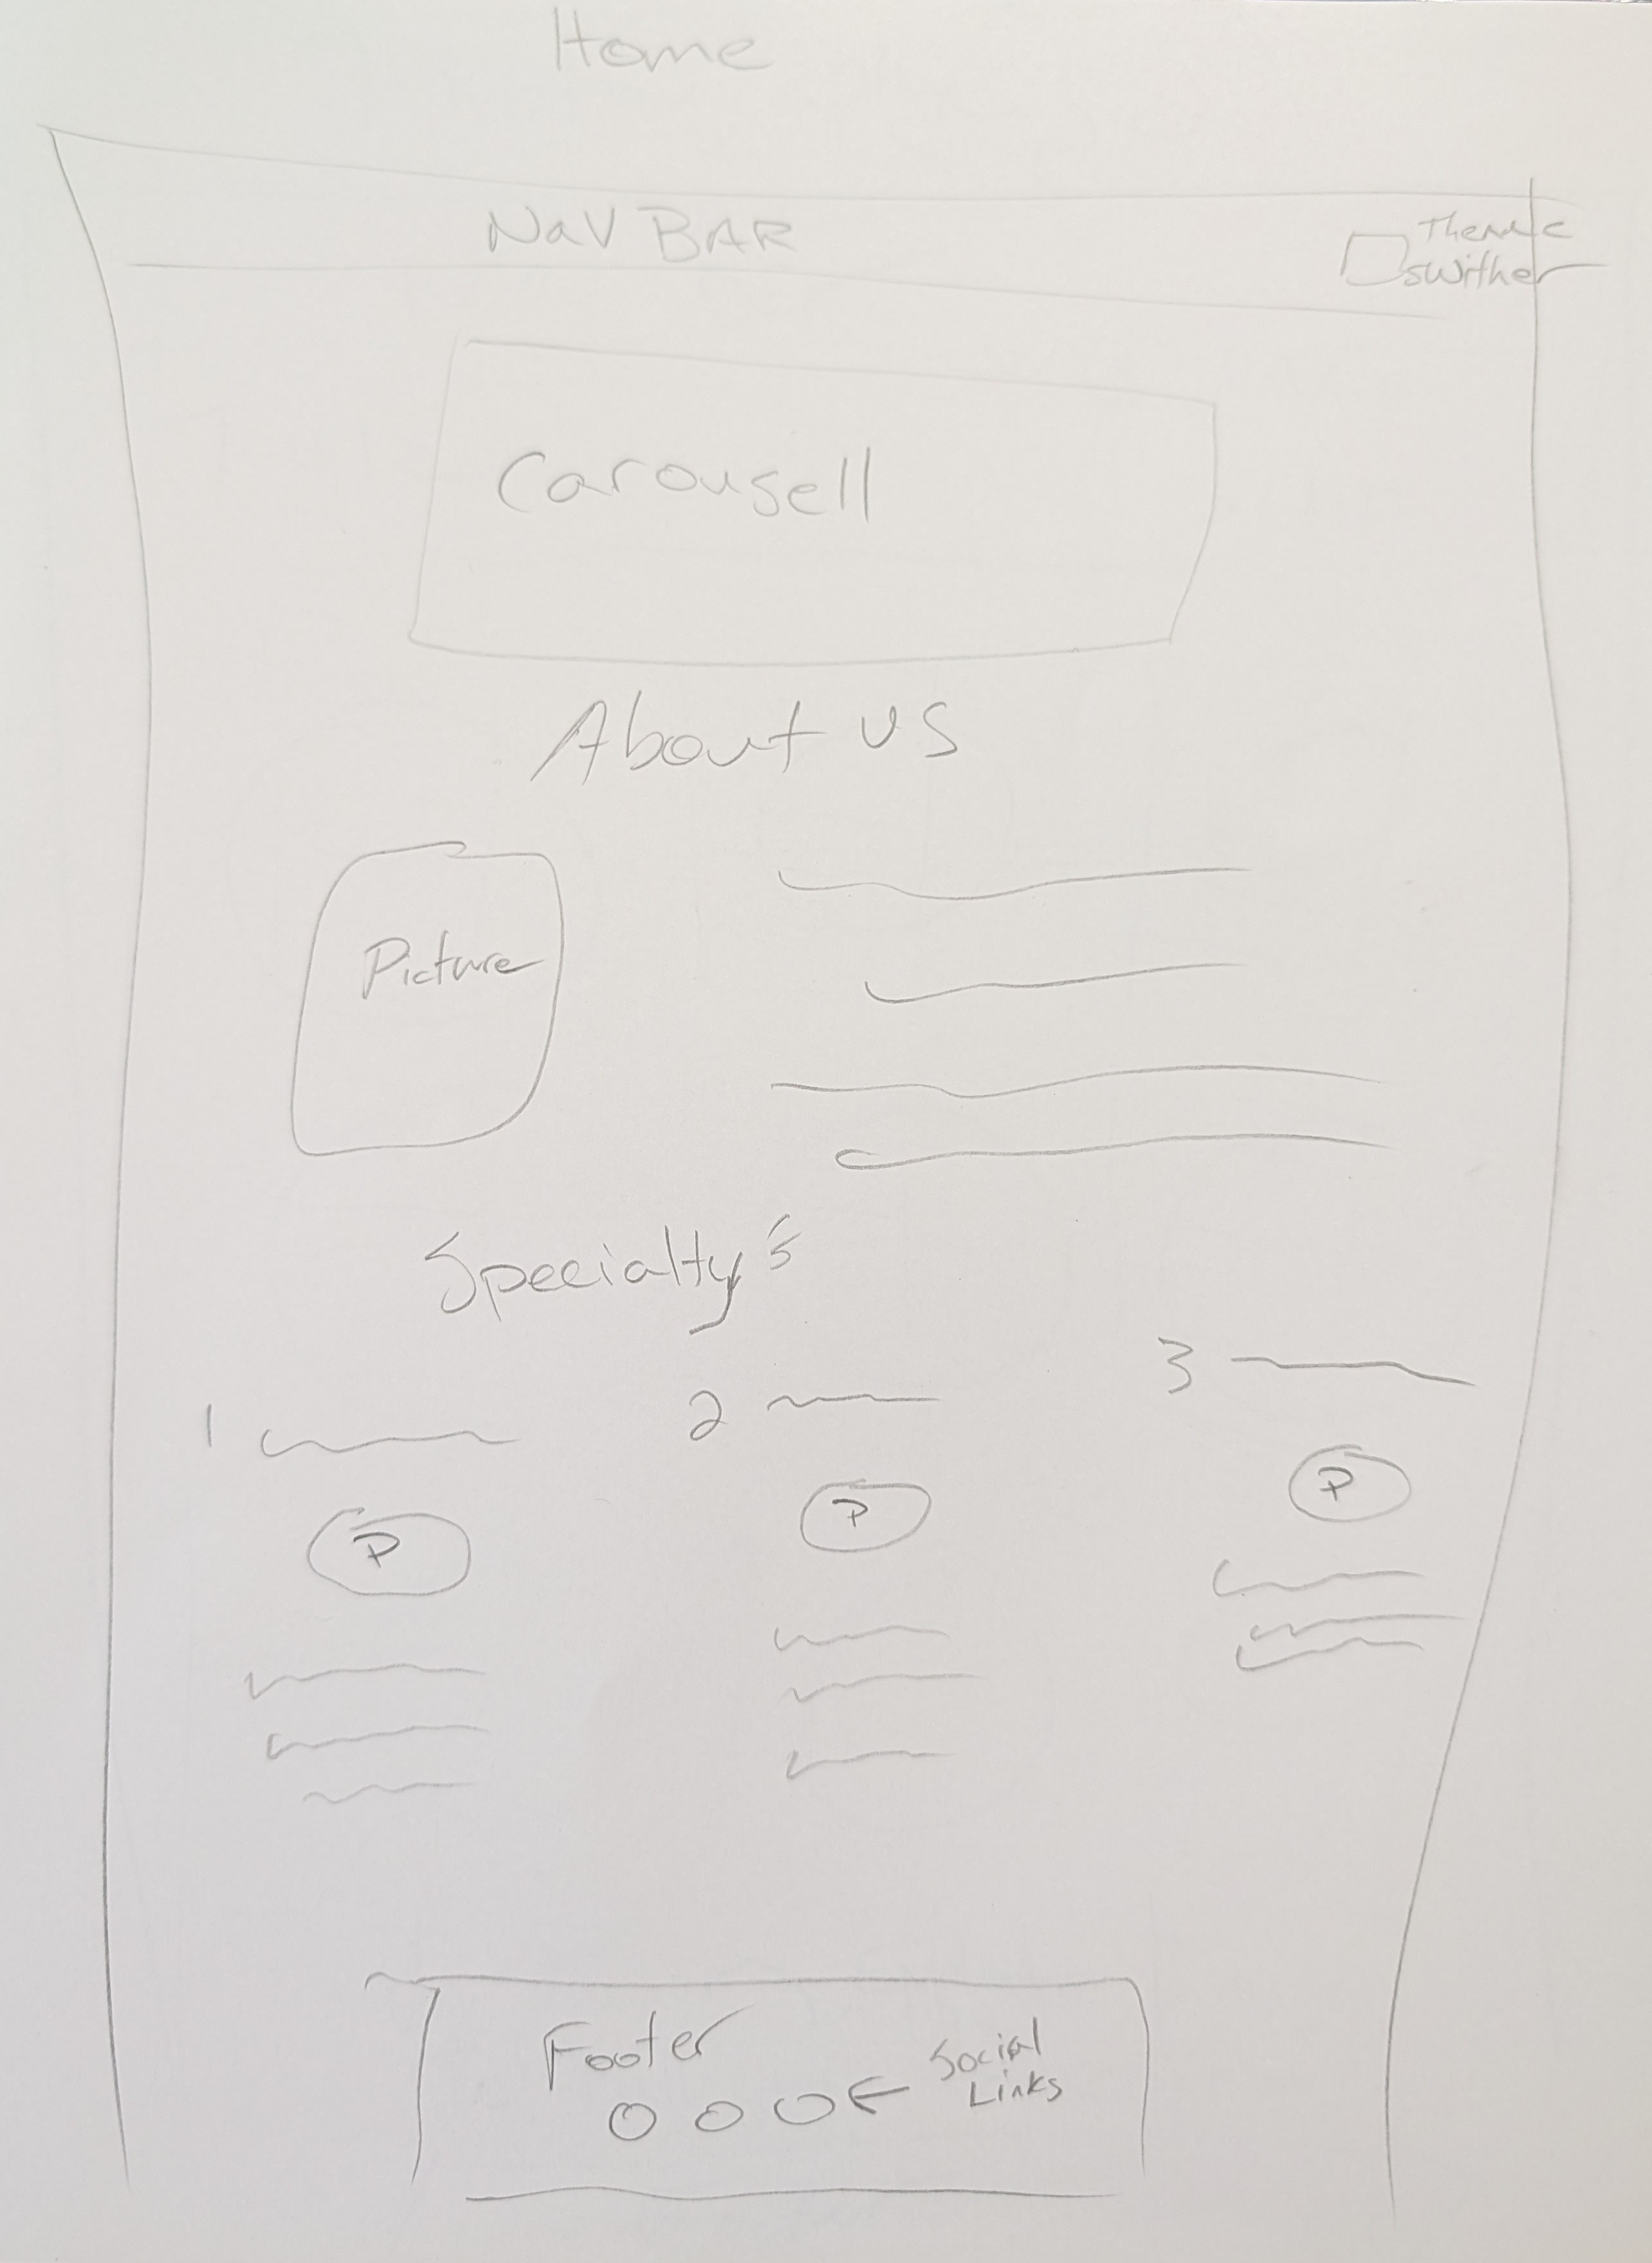 Home
NaV BAR
Theme
swither
Carousell
About us
Picture
Specialty's
1
2
3
P
P
P
Footer
Social
Links